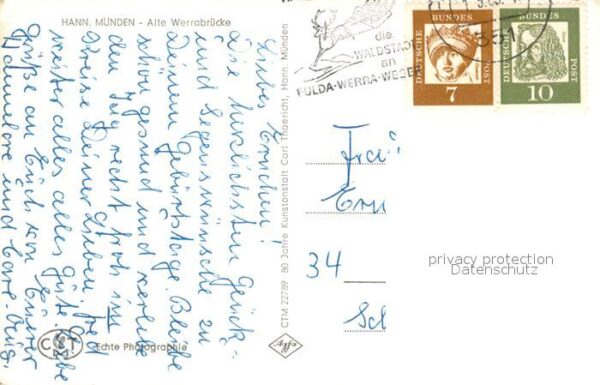 HANN. MÜNDEN - Alte Werrabrücke
Liebes Ernchen!
Die herzlichsten Glück-
und Segenswünsche zu
Deinem Geburtstage. Bleibe
schön gesund und verlebe
den Tag recht froh im
Kreise Deiner Lieben.
weiter alles alles Gute.
Grüße an Euch von Eurer
Hannelore und
CTM 22789 80 Jahre Kunstanstalt Carl Thoericht, Hann. Münden
Echte Photographie
C T M
agfa
die
WALDSTADT
an
FULDA-WERRA-WESER
DEUTSCHE BUNDES POST
7
DEUTSCHE BUNDES POST
10
351
Frau
34
Sch
privacy protection
Datenschutz